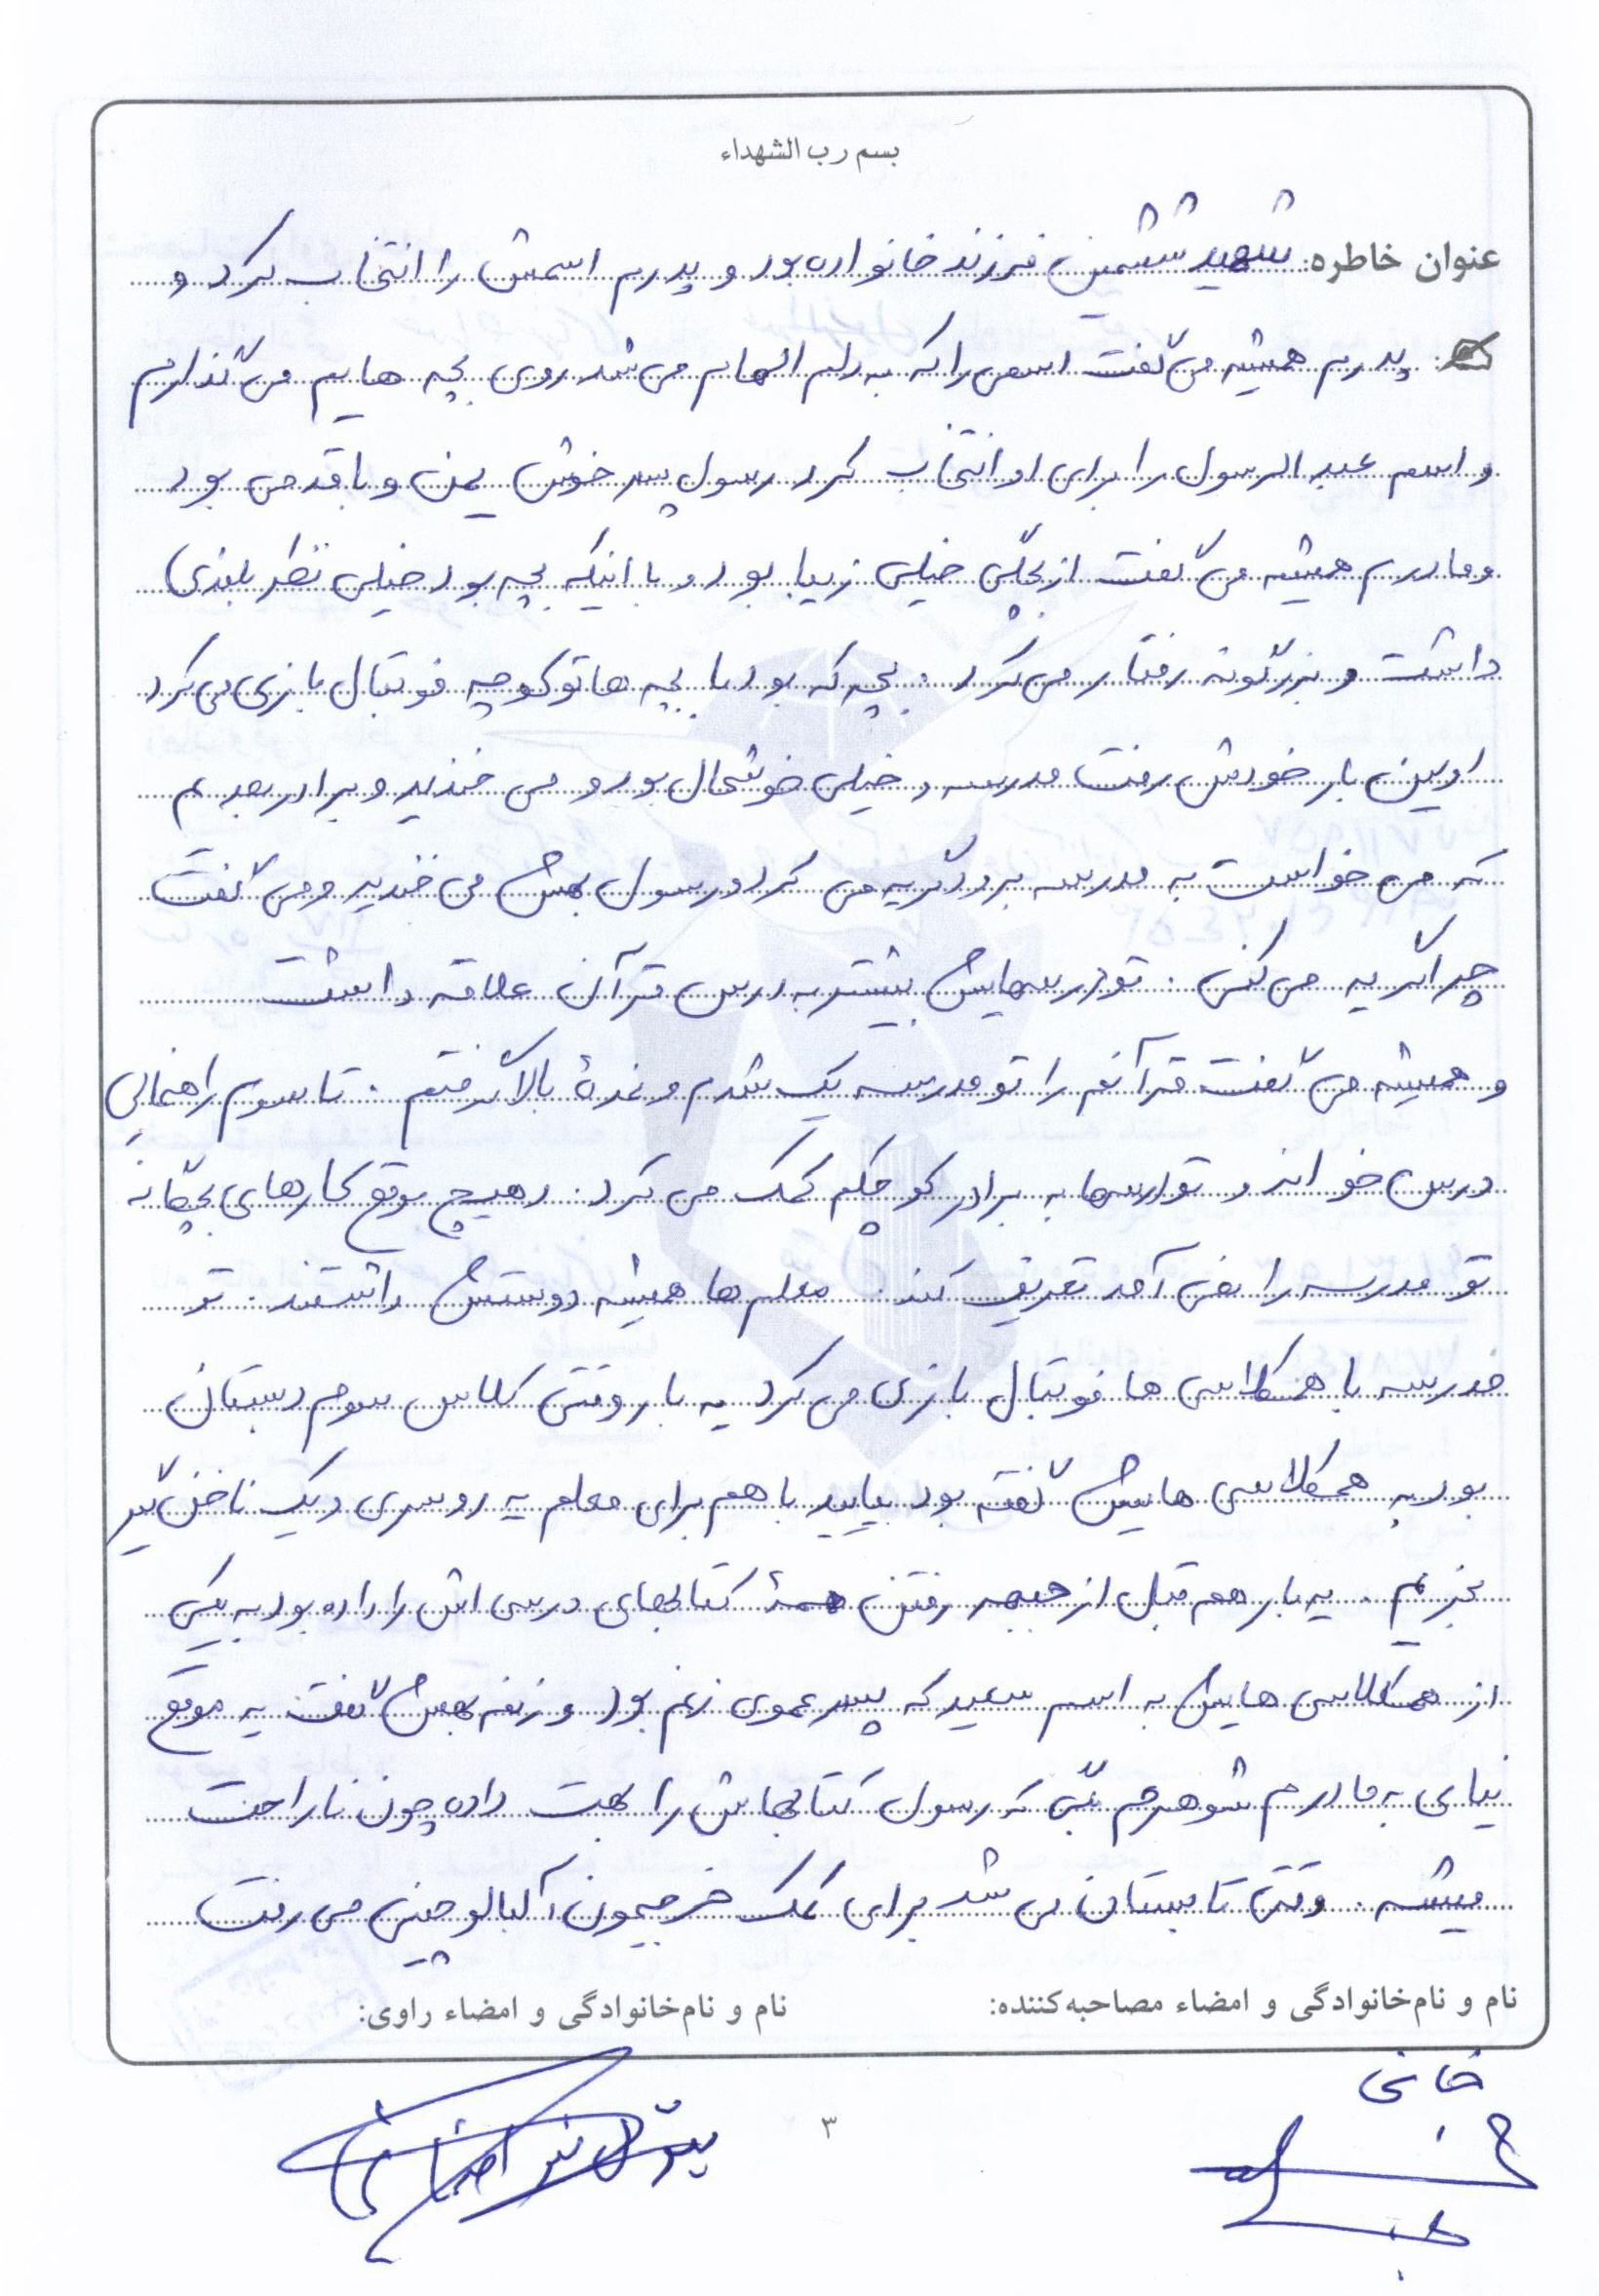 بسم رب الشهداء
عنوان خاطره: شهید ششمین فرزند خانواده بود و پدرم اسمش را انتخاب کرد و
پدرم همیشه می گفت اسمی را که به دلم الهام می شد روی بچه هایم می گذارم
و اسم عبدالرسول را برای او انتخاب کرد رسول پسر خوش یمن و باقدمی بود
و مادرم همیشه می گفت از بچگی خیلی زیبا بود و با اینکه بچه بود خیلی نظر بلندی
داشت و بزرگونه رفتار می کرد . بچه که بود با بچه ها تو کوچه فوتبال بازی می کرد
اولین بار خودش رفت مدرسه و خیلی خوشحال بود و می خندید و برادر بعدیم
که می خواست به مدرسه برود گریه می کرد و رسول بهش می خندید و می گفت
چرا گریه می کنی . تو درسهایش بیشتر به درس قرآن علاقه داشت
و همیشه می گفت قرآنم را تو مدرسه یک شدم و نمرهٔ بالا گرفتم . تا سوم راهنمایی
درس خواند و تو درسها به برادر کوچکم کمک می کرد . و هیچ موقع کارهای بچگانه
تو مدرسه را نمی آمد تعریف کند . معلم ها همیشه دوستش داشتند . تو
مدرسه با همکلاسی ها فوتبال بازی می کرد یه بار وقتی کلاس سوم دبستان
بود به همکلاسی هایش گفته بود بیایید با هم برای معلم یه روسری و یک ناخن گیر
بخریم . یه بار هم قبل از جبهه رفتن همهٔ کتابهای درسی اش را داده بود به یکی
از همکلاسی هایش به اسم سعید که پسر عموی زنم بود و زنم بهش گفت یه موقع
نیای به مادرم شوهرم بگی که رسول کتابهاش را بهت داده چون ناراحت
میشه . وقتی تابستان می شد برای کمک خرجیمون آلبالو چینی می رفت
نام و نام‌خانوادگی و امضاء مصاحبه‌کننده:
نام و نام‌خانوادگی و امضاء راوی:
خانی
۳